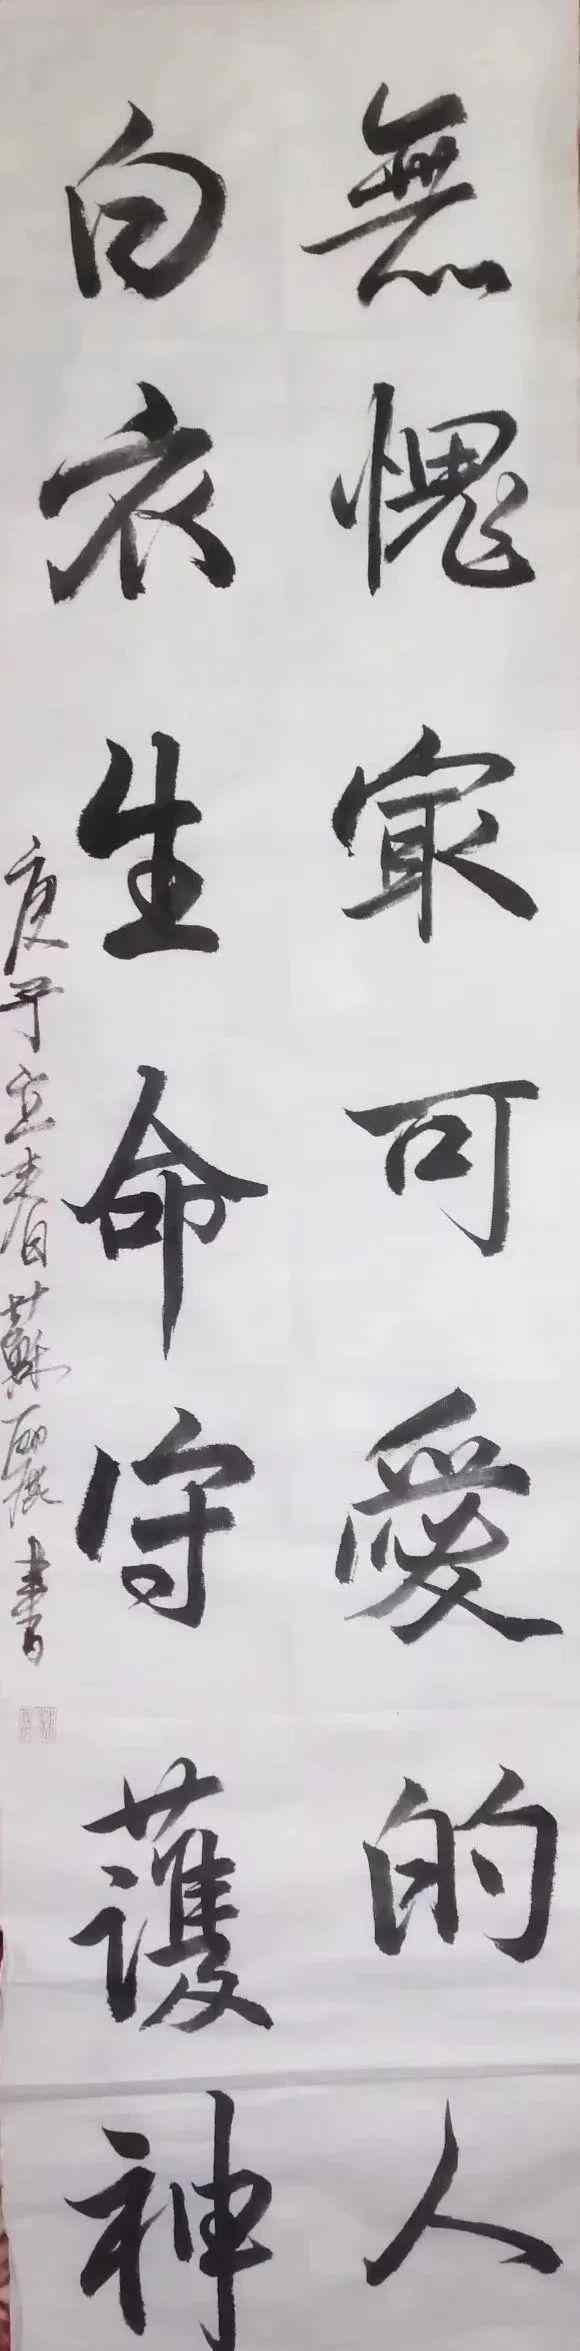 無愧冣可愛的人
白衣生命守護神
庚子立春日蘇麗書